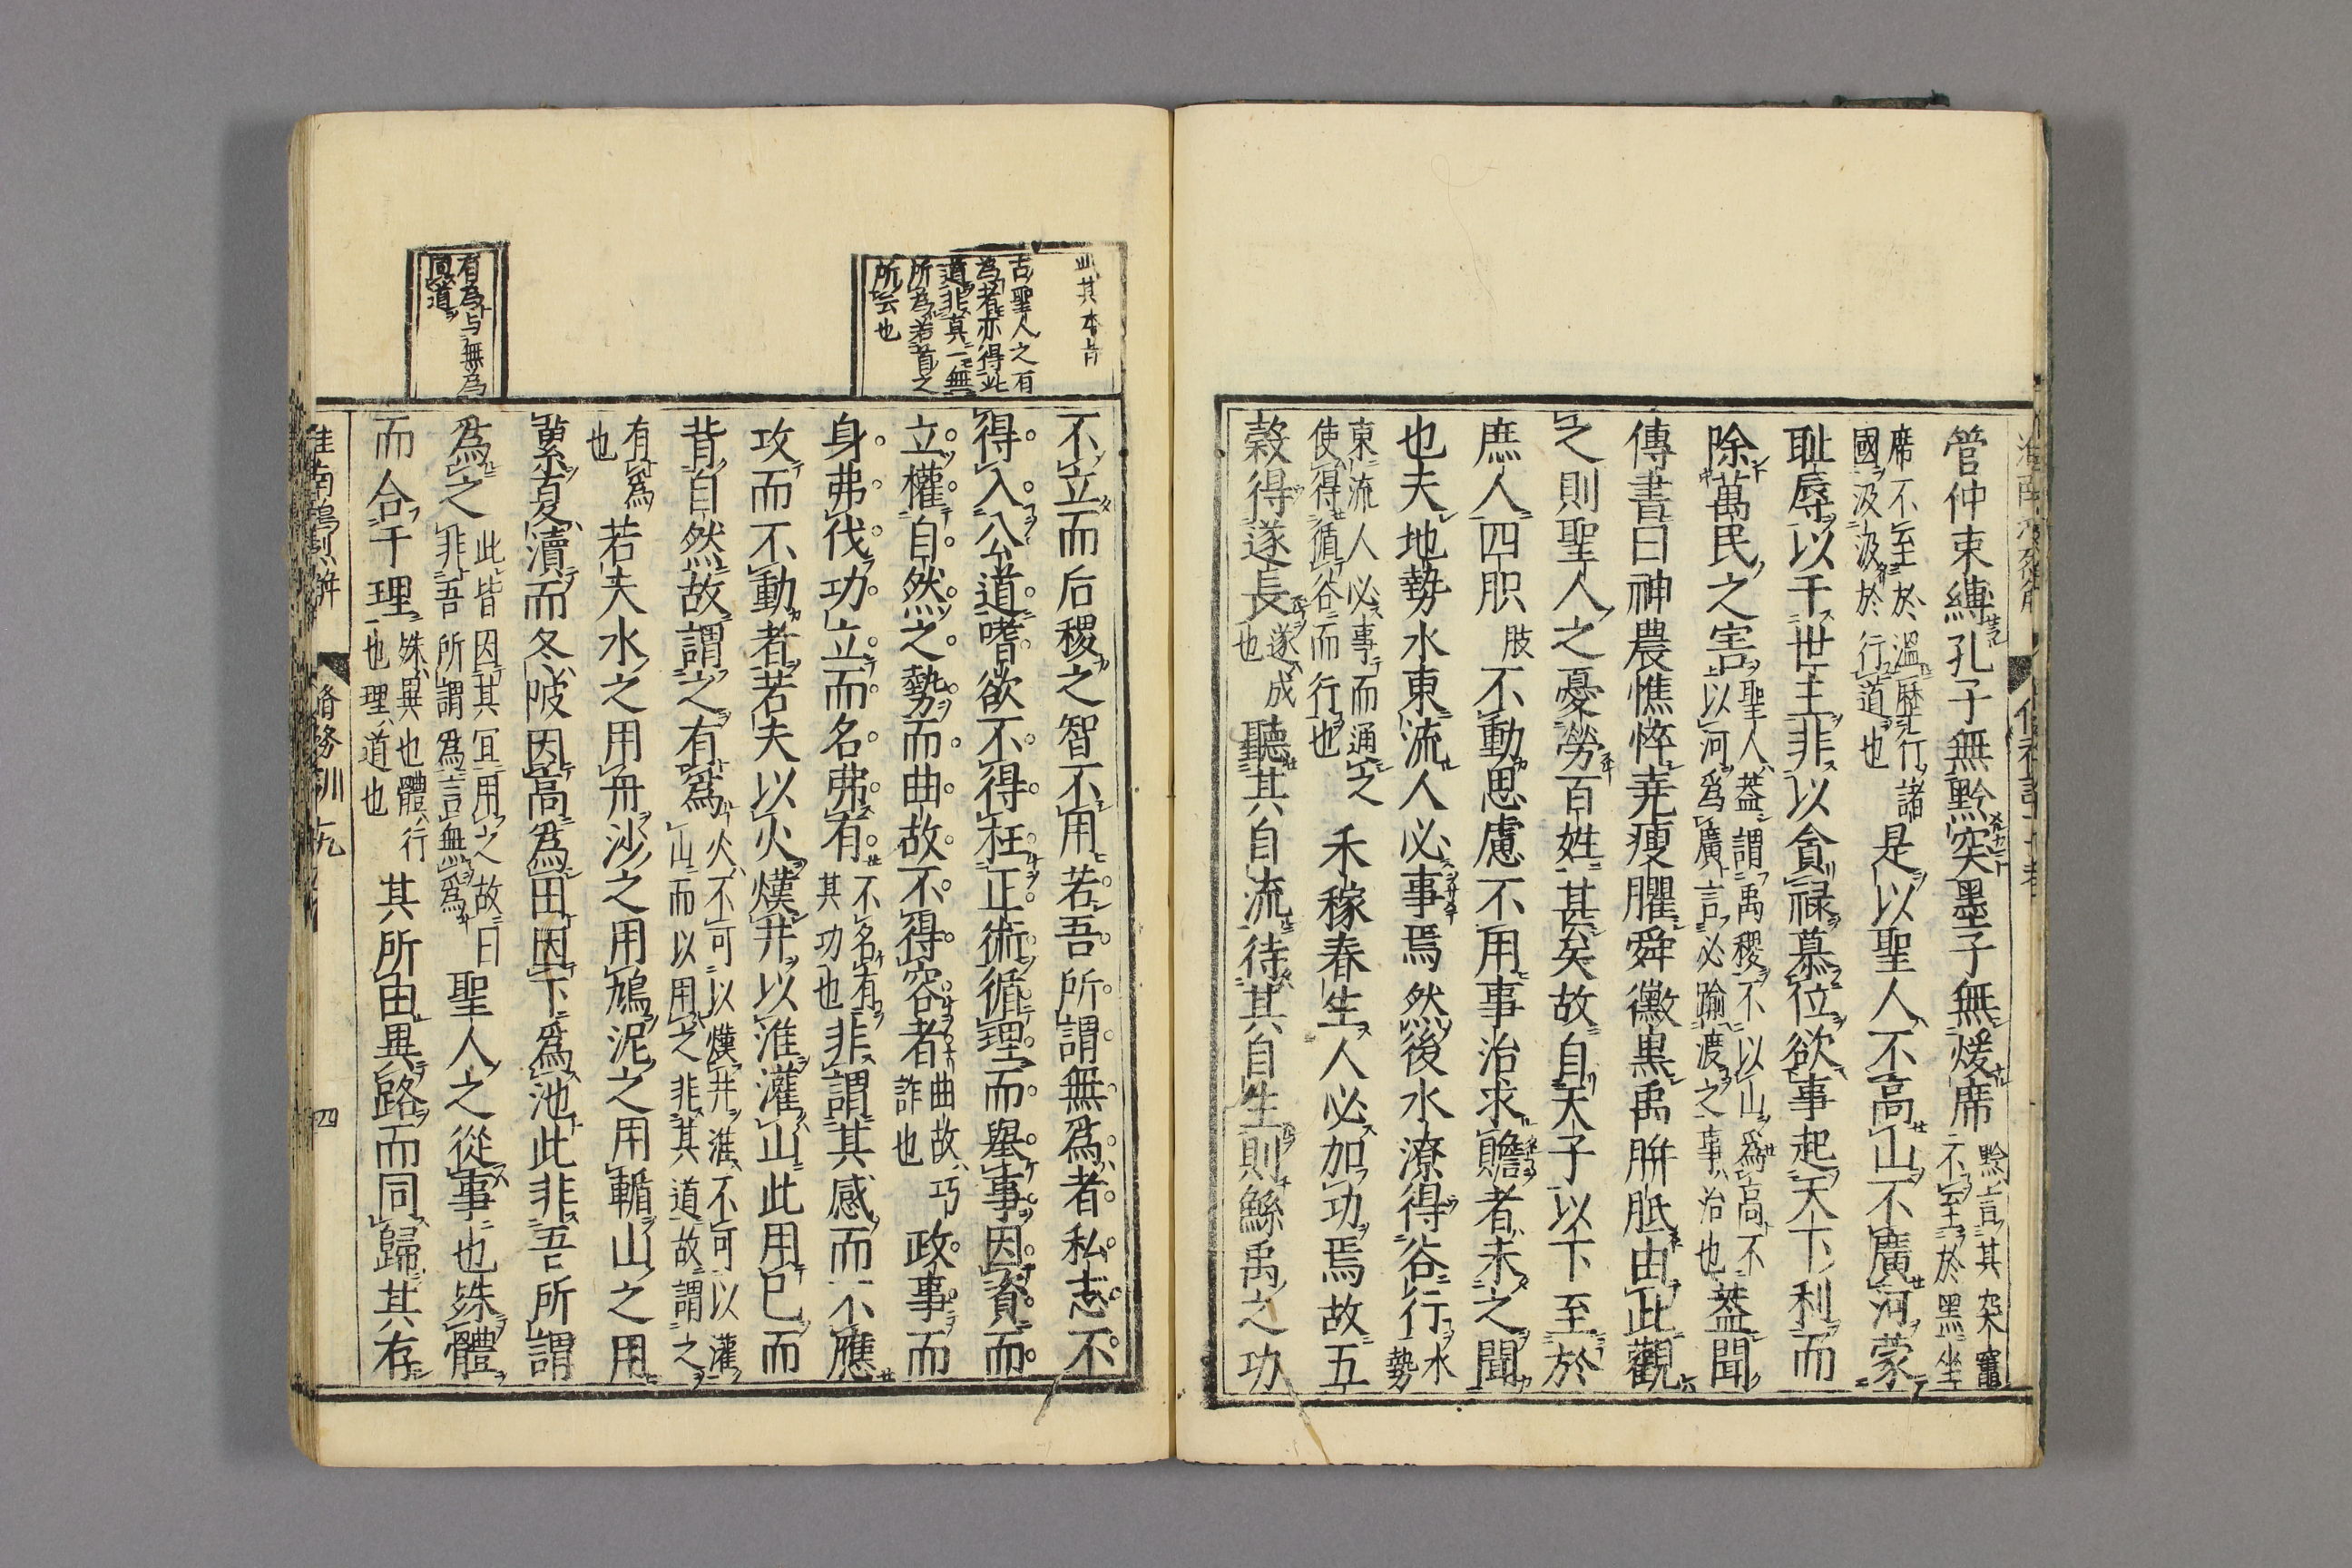 管仲束縛孔子無黔突墨子無煖席黔言其突竈不至於黑坐
席不至於溫歷行諸國汲汲於行道也是以聖人不高山不廣河蒙
耻辱以干世主非以貪禄慕位欲事起天下利而
除萬民之害聖人蓋謂禹稷不以山爲高不以河爲廣言必踰渡之事治也蓋聞
傳書曰神農憔悴堯瘦臞舜黴黒禹胼胝由此觀
之則聖人之憂勞百姓甚矣故自天子以下至於
庶人四胑肢不動思慮不用事治求贍者未之聞
也夫地勢水東流人必事焉然後水潦得谷行水勢
東流人必事而通之使得循谷而行也禾稼春生人必加功焉故五
穀得遂長遂成也聽其自流待其自生則鯀禹之功
不立而后稷之智不用若吾所謂無爲者私志不
得入公道嗜欲不得枉正術循理而舉事因資而
立權自然之勢而曲故不得容者曲故巧詐也政事而
身弗伐功立而名弗有不名有其功也非謂其感而不應
攻而不動者若夫以火熯井以淮灌山此用已而
背自然故謂之有爲火不可以熯井淮不可以灌山而以用之非其道故謂之
有爲也若夫水之用舟沙之用鳩泥之用輴山之用
蔂夏瀆而冬陂因高爲田因下爲池此非吾所謂
爲之此皆因其冝用之故曰非吾所謂爲言無爲聖人之從事也殊體
而合于理殊異也體行也理道也其所由異路而同歸其存
淮南鴻烈解 脩務訓九 四
此其本旨
古聖人之有
為者亦得此
道非真一無
所為若首之
所云也
有為与無為
同道